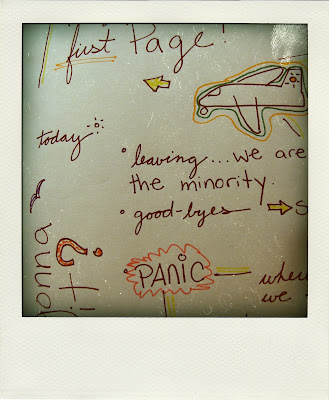 first Page!
today
• leaving... we are
the minority.
• good-byes
• PANIC
we
?